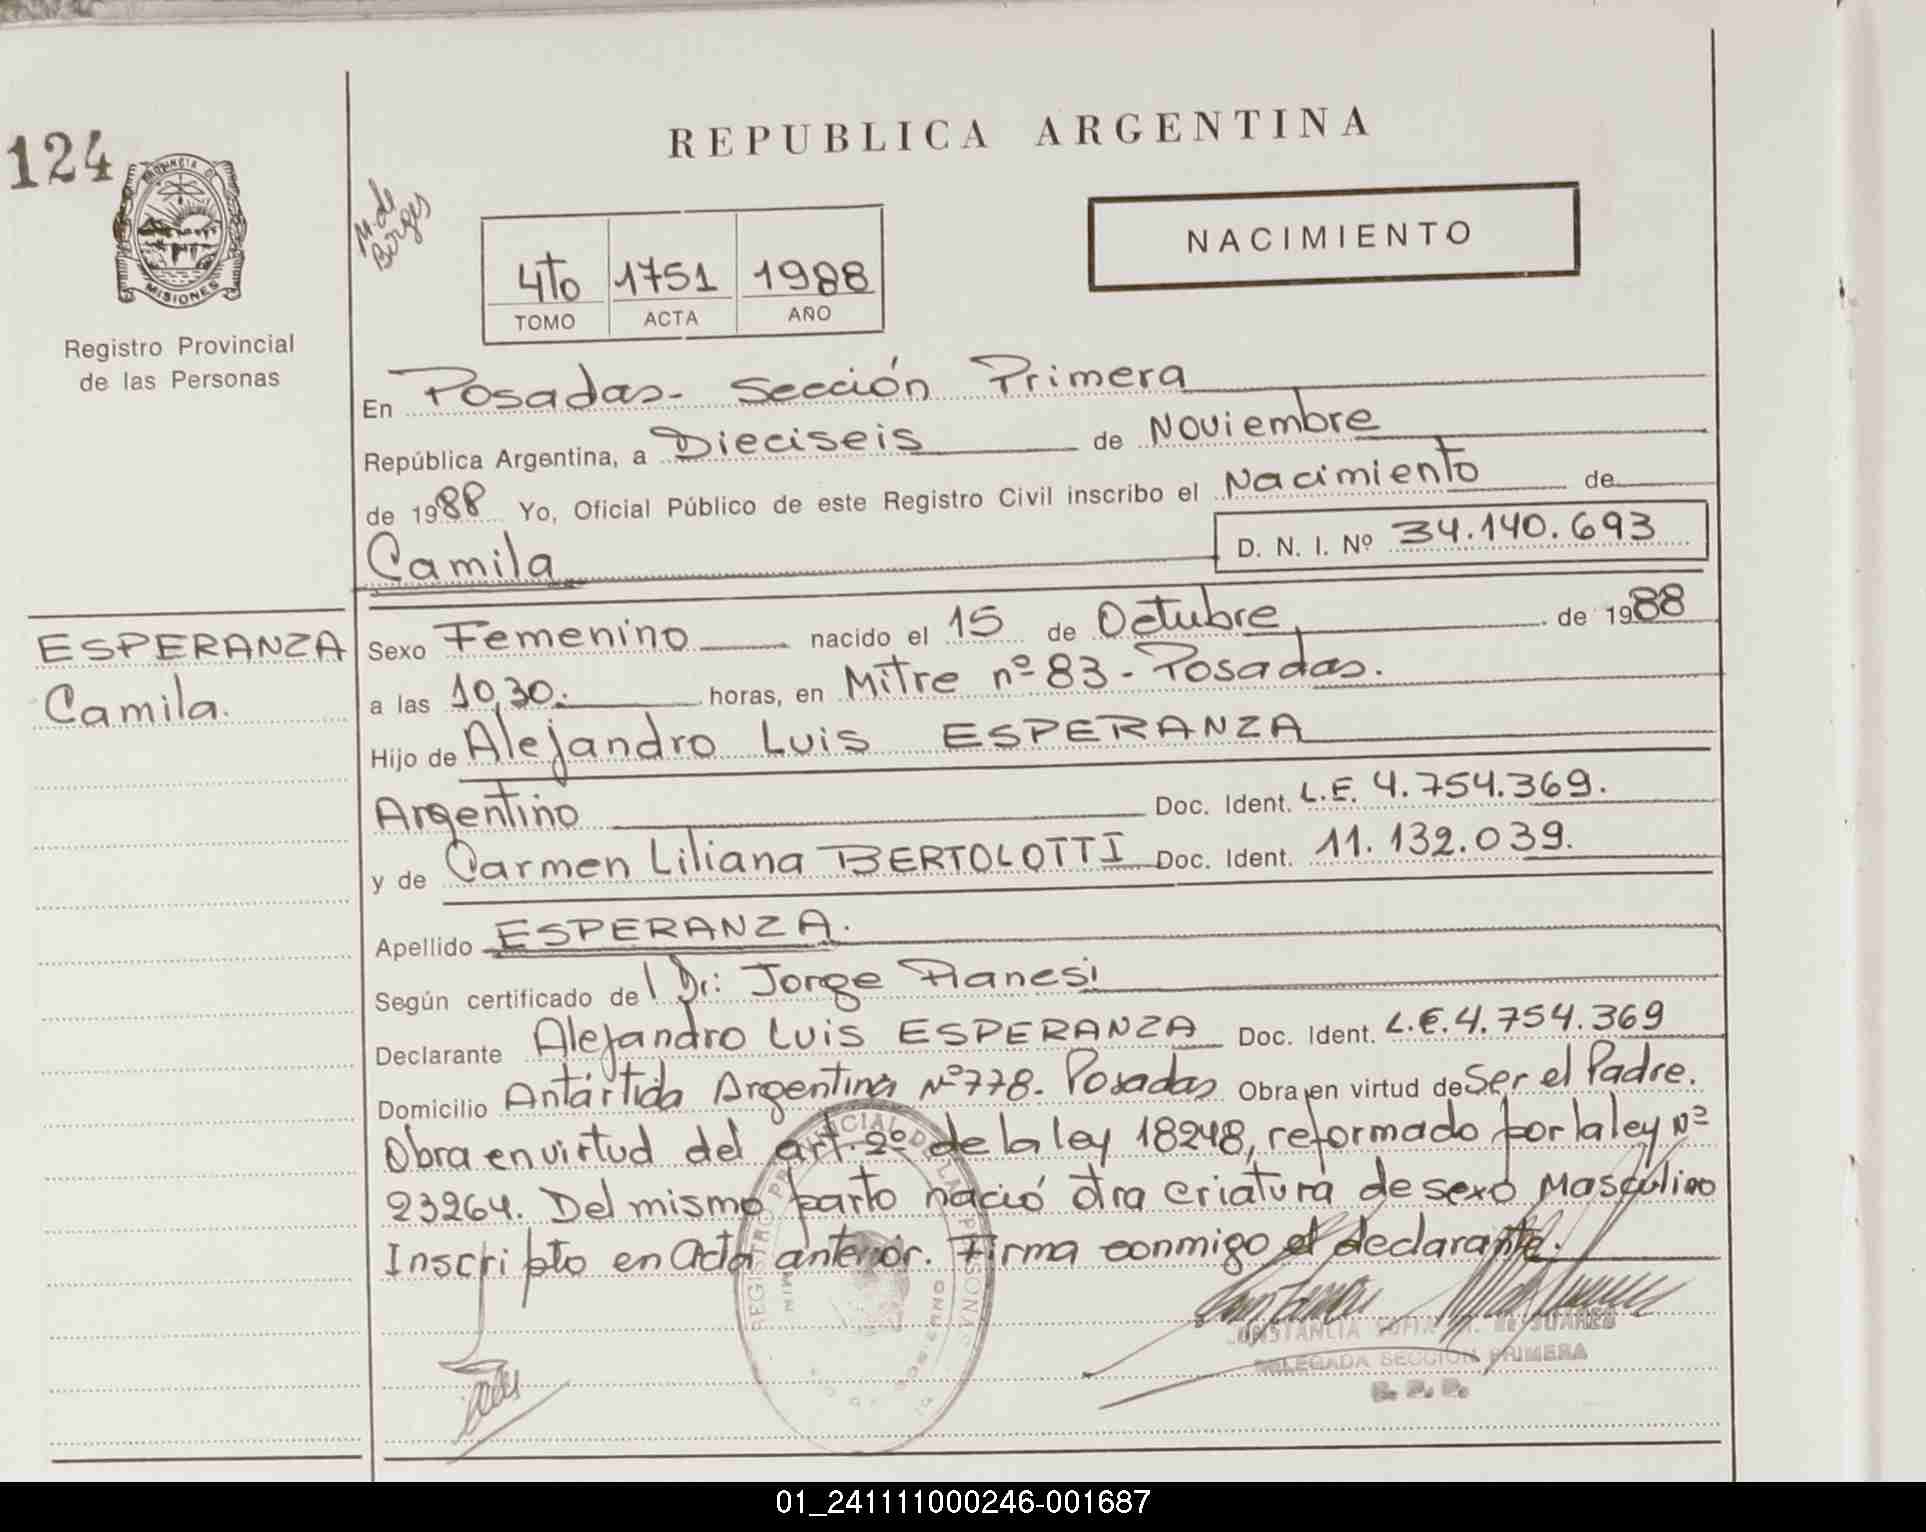 124
PROVINCIA DE
MISIONES
Registro Provincial
de las Personas
M. de
Borges
REPUBLICA ARGENTINA
4to 1751 1988
TOMO ACTA AÑO
NACIMIENTO
En Posadas- Sección Primera
República Argentina, a Dieciseis de Noviembre
de 1988 Yo, Oficial Público de este Registro Civil inscribo el Nacimiento de
Camila D. N. I. Nº 34.140.693
ESPERANZA
Camila.
Sexo Femenino nacido el 15 de Octubre de 1988
a las 10,30. horas, en Mitre nº 83 - Posadas.
Hijo de Alejandro Luis ESPERANZA
Argentino Doc. Ident. L.E. 4.754.369.
y de Carmen Liliana BERTOLOTTI Doc. Ident. 11.132.039.
Apellido ESPERANZA.
Según certificado del Dr: Jorge Pianesi
Declarante Alejandro Luis ESPERANZA Doc. Ident. L.E. 4.754.369
Domicilio Antártida Argentina Nº 778. Posadas Obra en virtud de Ser el Padre.
Obra en virtud del art. 2º de la ley 18248, reformado por la ley Nº
23264. Del mismo parto nació otra criatura de sexo Masculino
Inscripto en acta anterior. Firma conmigo el declarante.
REGISTRO PROVINCIAL DE LAS PERSONAS
CONSTANCIA SOFIA DE SUAREZ
DELEGADA SECCION PRIMERA
R. P. P.
01_241111000246-001687